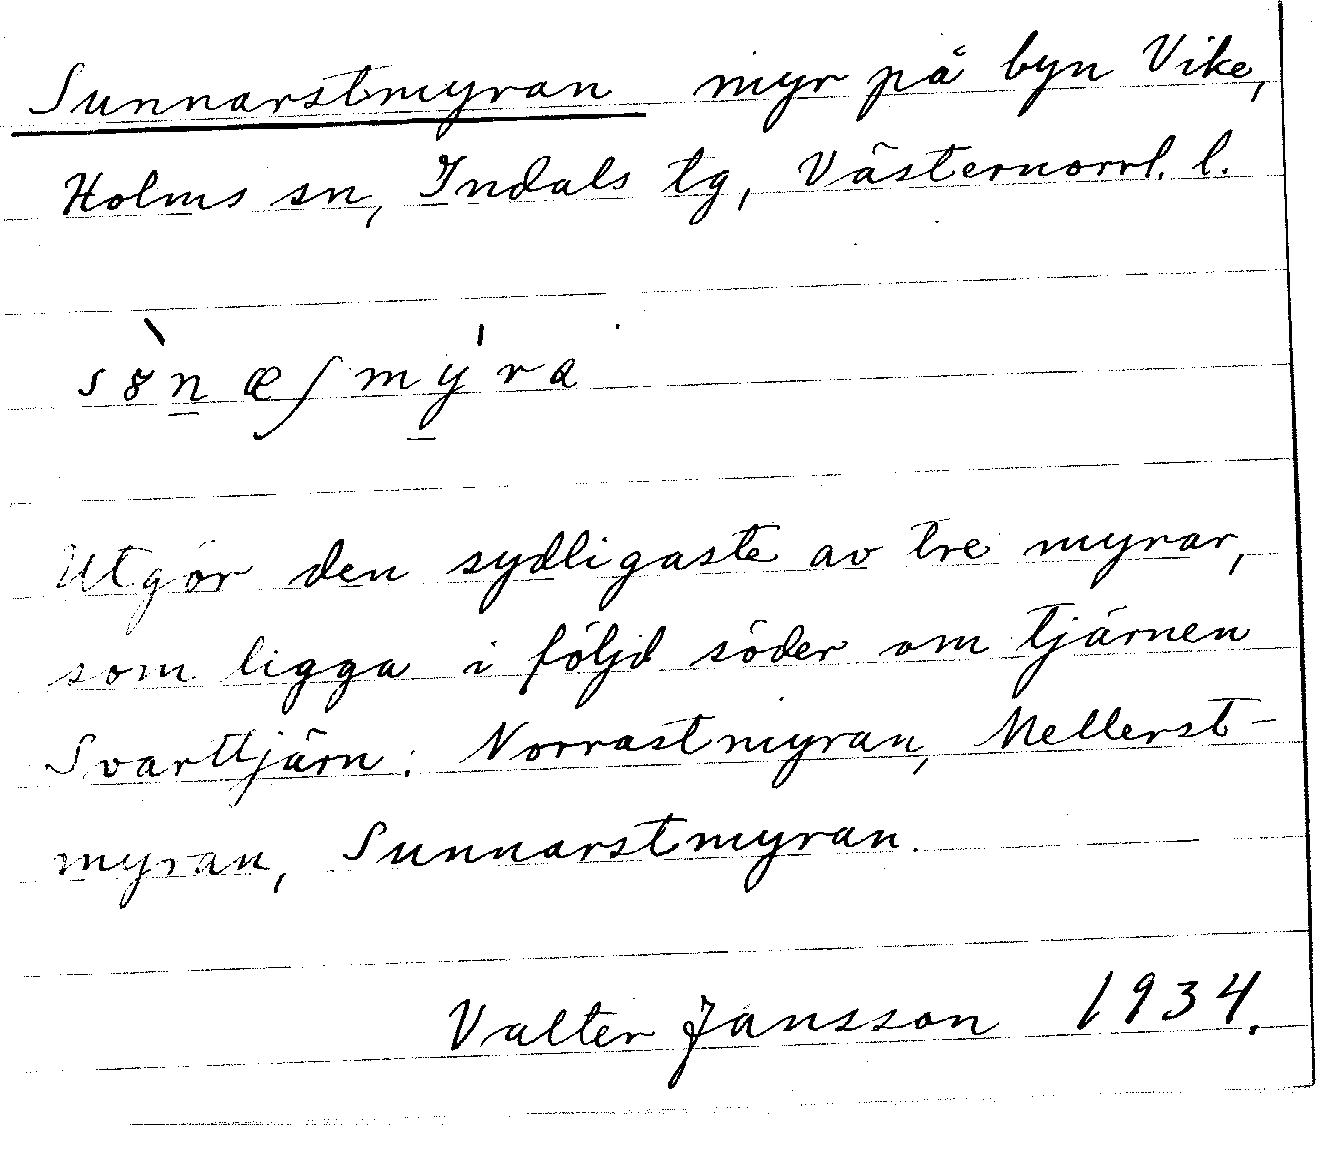 Sunnarstmyran myr på byn Vike,
Holms sn, Indals tg, Västernorrl. l.
sönæʃmýra
Utgör den sydligaste av tre myrar,
som ligga i följd söder om tjärnen
Svarttjärn: Norrastmyran, Mellerst-
myran, Sunnarstmyran.
Valter Jansson 1934.